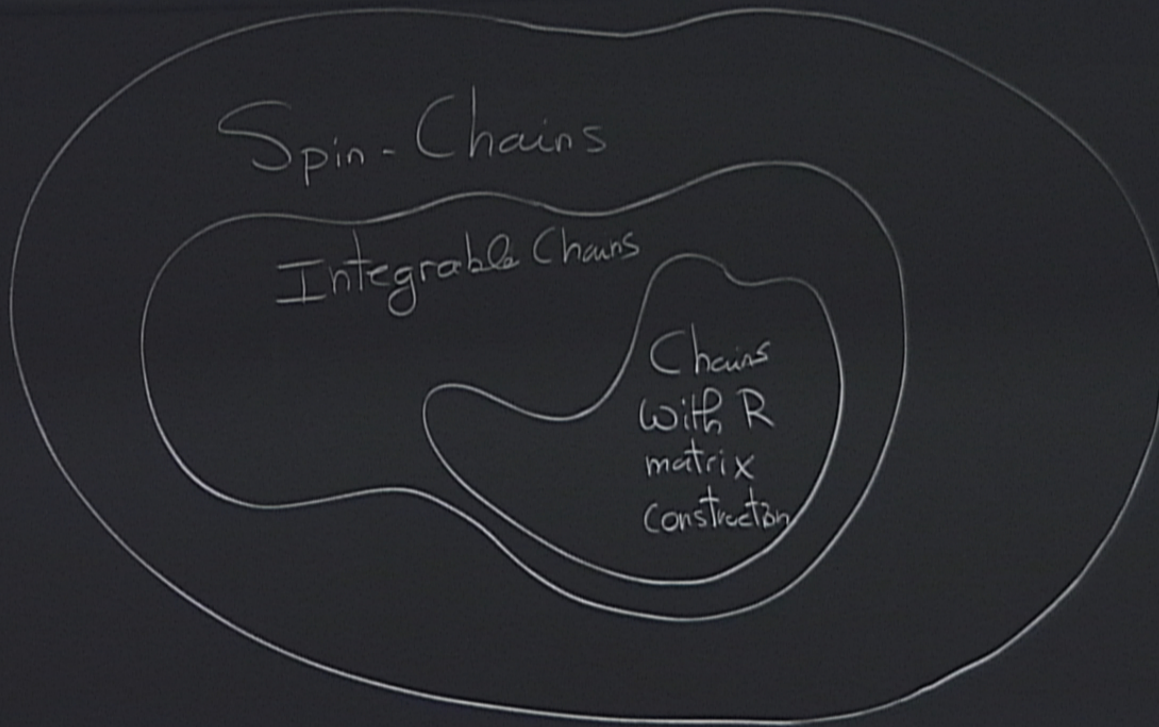 Spin-Chains
Integrable Chains
Chains
with R
matrix
construction